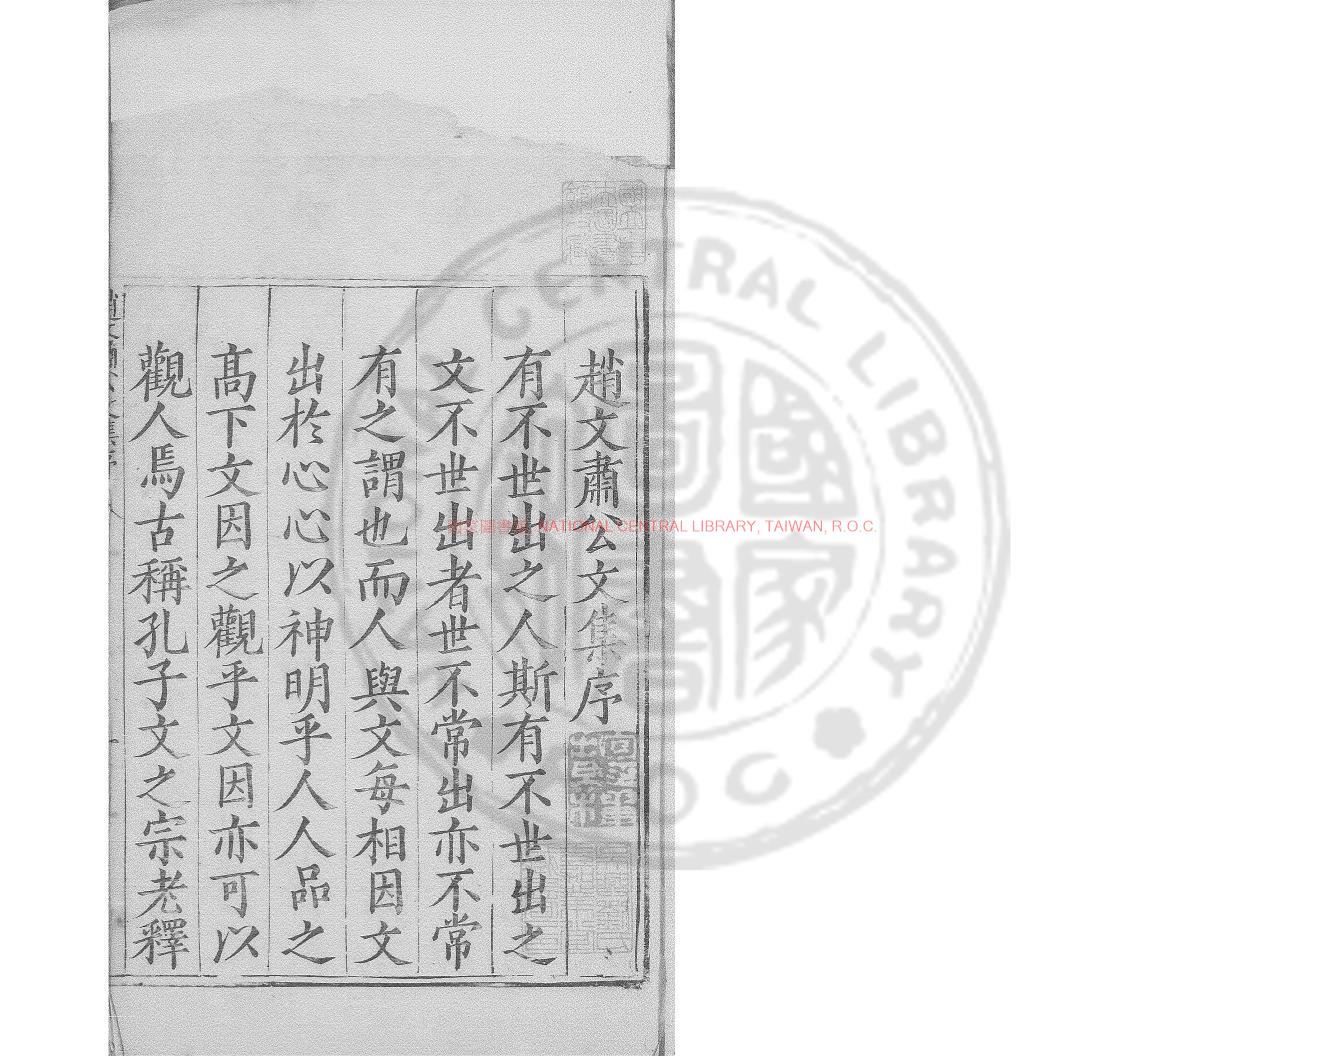 趙文肅公文集序
有不世出之人斯有不世出之
文不世出者世不常出亦不常
有之謂也而人與文每相因文
出於心心以神明乎人人品之
高下文因之觀乎文因亦可以
觀人焉古稱孔子文之宗老釋
國家圖書館
NATIONAL CENTRAL LIBRARY, TAIWAN, R.O.C.
CENTRAL LIBRARY